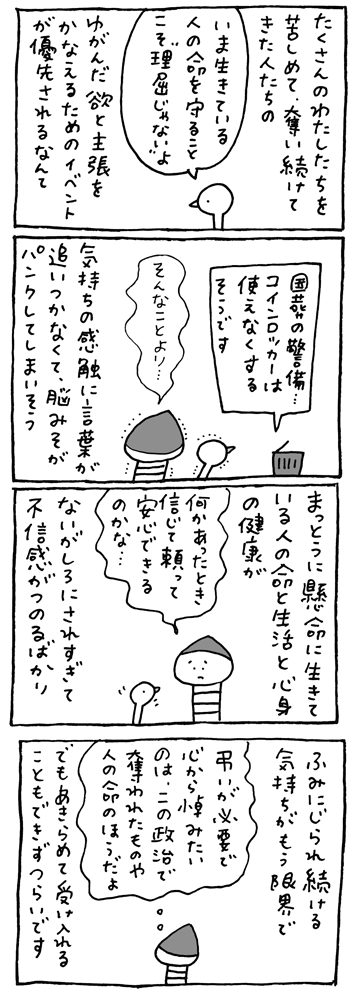 たくさんのわたしたちを
苦しめて、奪い続けて
きた人たちの
いま生きている
人の命を守ること
こそ理屈じゃないよ
ゆがんだ欲と主張を
かなえるためのイベント
が優先されるなんて
国葬の警備…
コインロッカーは
使えなくする
そうです
そんなことより…
気持ちの感触に言葉が
追いつかなくて、脳みそが
パンクしてしまいそう
まっとうに懸命に生きて
いる人の命と生活と心身
の健康が
何かあったとき
信じて頼って
安心できる
のかな…
ないがしろにされすぎて
不信感がつのるばかり
ふみにじられ続ける
気持ちがもう限界で
弔いが必要で
心から悼みたい
のは、この政治で
奪われたものや
人の命のほうだよ
でもあきらめて受け入れる
こともできずつらいです